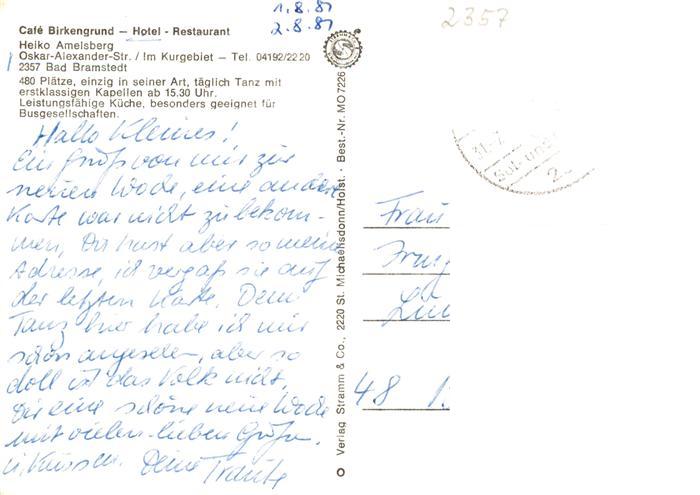 1.8.87
2.8.87
2357
Café Birkengrund — Hotel - Restaurant
Heiko Amelsberg
Oskar-Alexander-Str. / Im Kurgebiet — Tel. 04192/22 20
2357 Bad Bramstedt
480 Plätze, einzig in seiner Art, täglich Tanz mit
erstklassigen Kapellen ab 15.30 Uhr.
Leistungsfähige Küche, besonders geeignet für
Busgesellschaften.
Hallo Kleines!
Ein Gruß von mir zur
neuen Woche, eine andere
Karte war nicht zu bekom-
men, Du hast aber so meine
Adresse, ich vergaß sie auf
der letzten Karte. Den
Tanz hier habe ich mir
schön angesehen, aber so
doll ist das Volk nicht.
Dir eine schöne neue Woche
mit vielen lieben Grüßen
u. Küssen. Deine Traute
Verlag Stramm & Co., 2220 St. Michaelisdonn/Holst. · Best.-Nr. MO 7226
31.7.
Frau
48